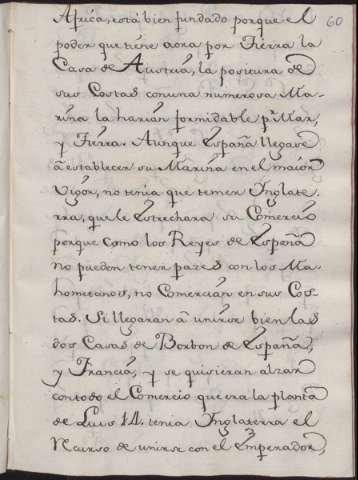 Africa, està bien fundado porque el 60
poder que tiene aora por Tierra la
Casa de Austria, la posicura de
sus Costas con una numerosa Ma-
rina la harian formidable pr. Mar,
y Tierra. Aunque España llegase
â establecer su Marina en el maior
vigor, no tenia que temer Inglate-
rra, que le estrechara su Comercio
porque como los Reyes de España
no pueden tener pazes con los Ma-
hometanos, no Comercian en sus Cos-
tas. Si llegaran â unirse bien las
dos Casas de Borbon de España,
y Francia, y se quisieran alzar
con todo el Comercio que era la planta
de Luis 14. tenia Inglaterra el
Recurso de unirse con el Emperador,